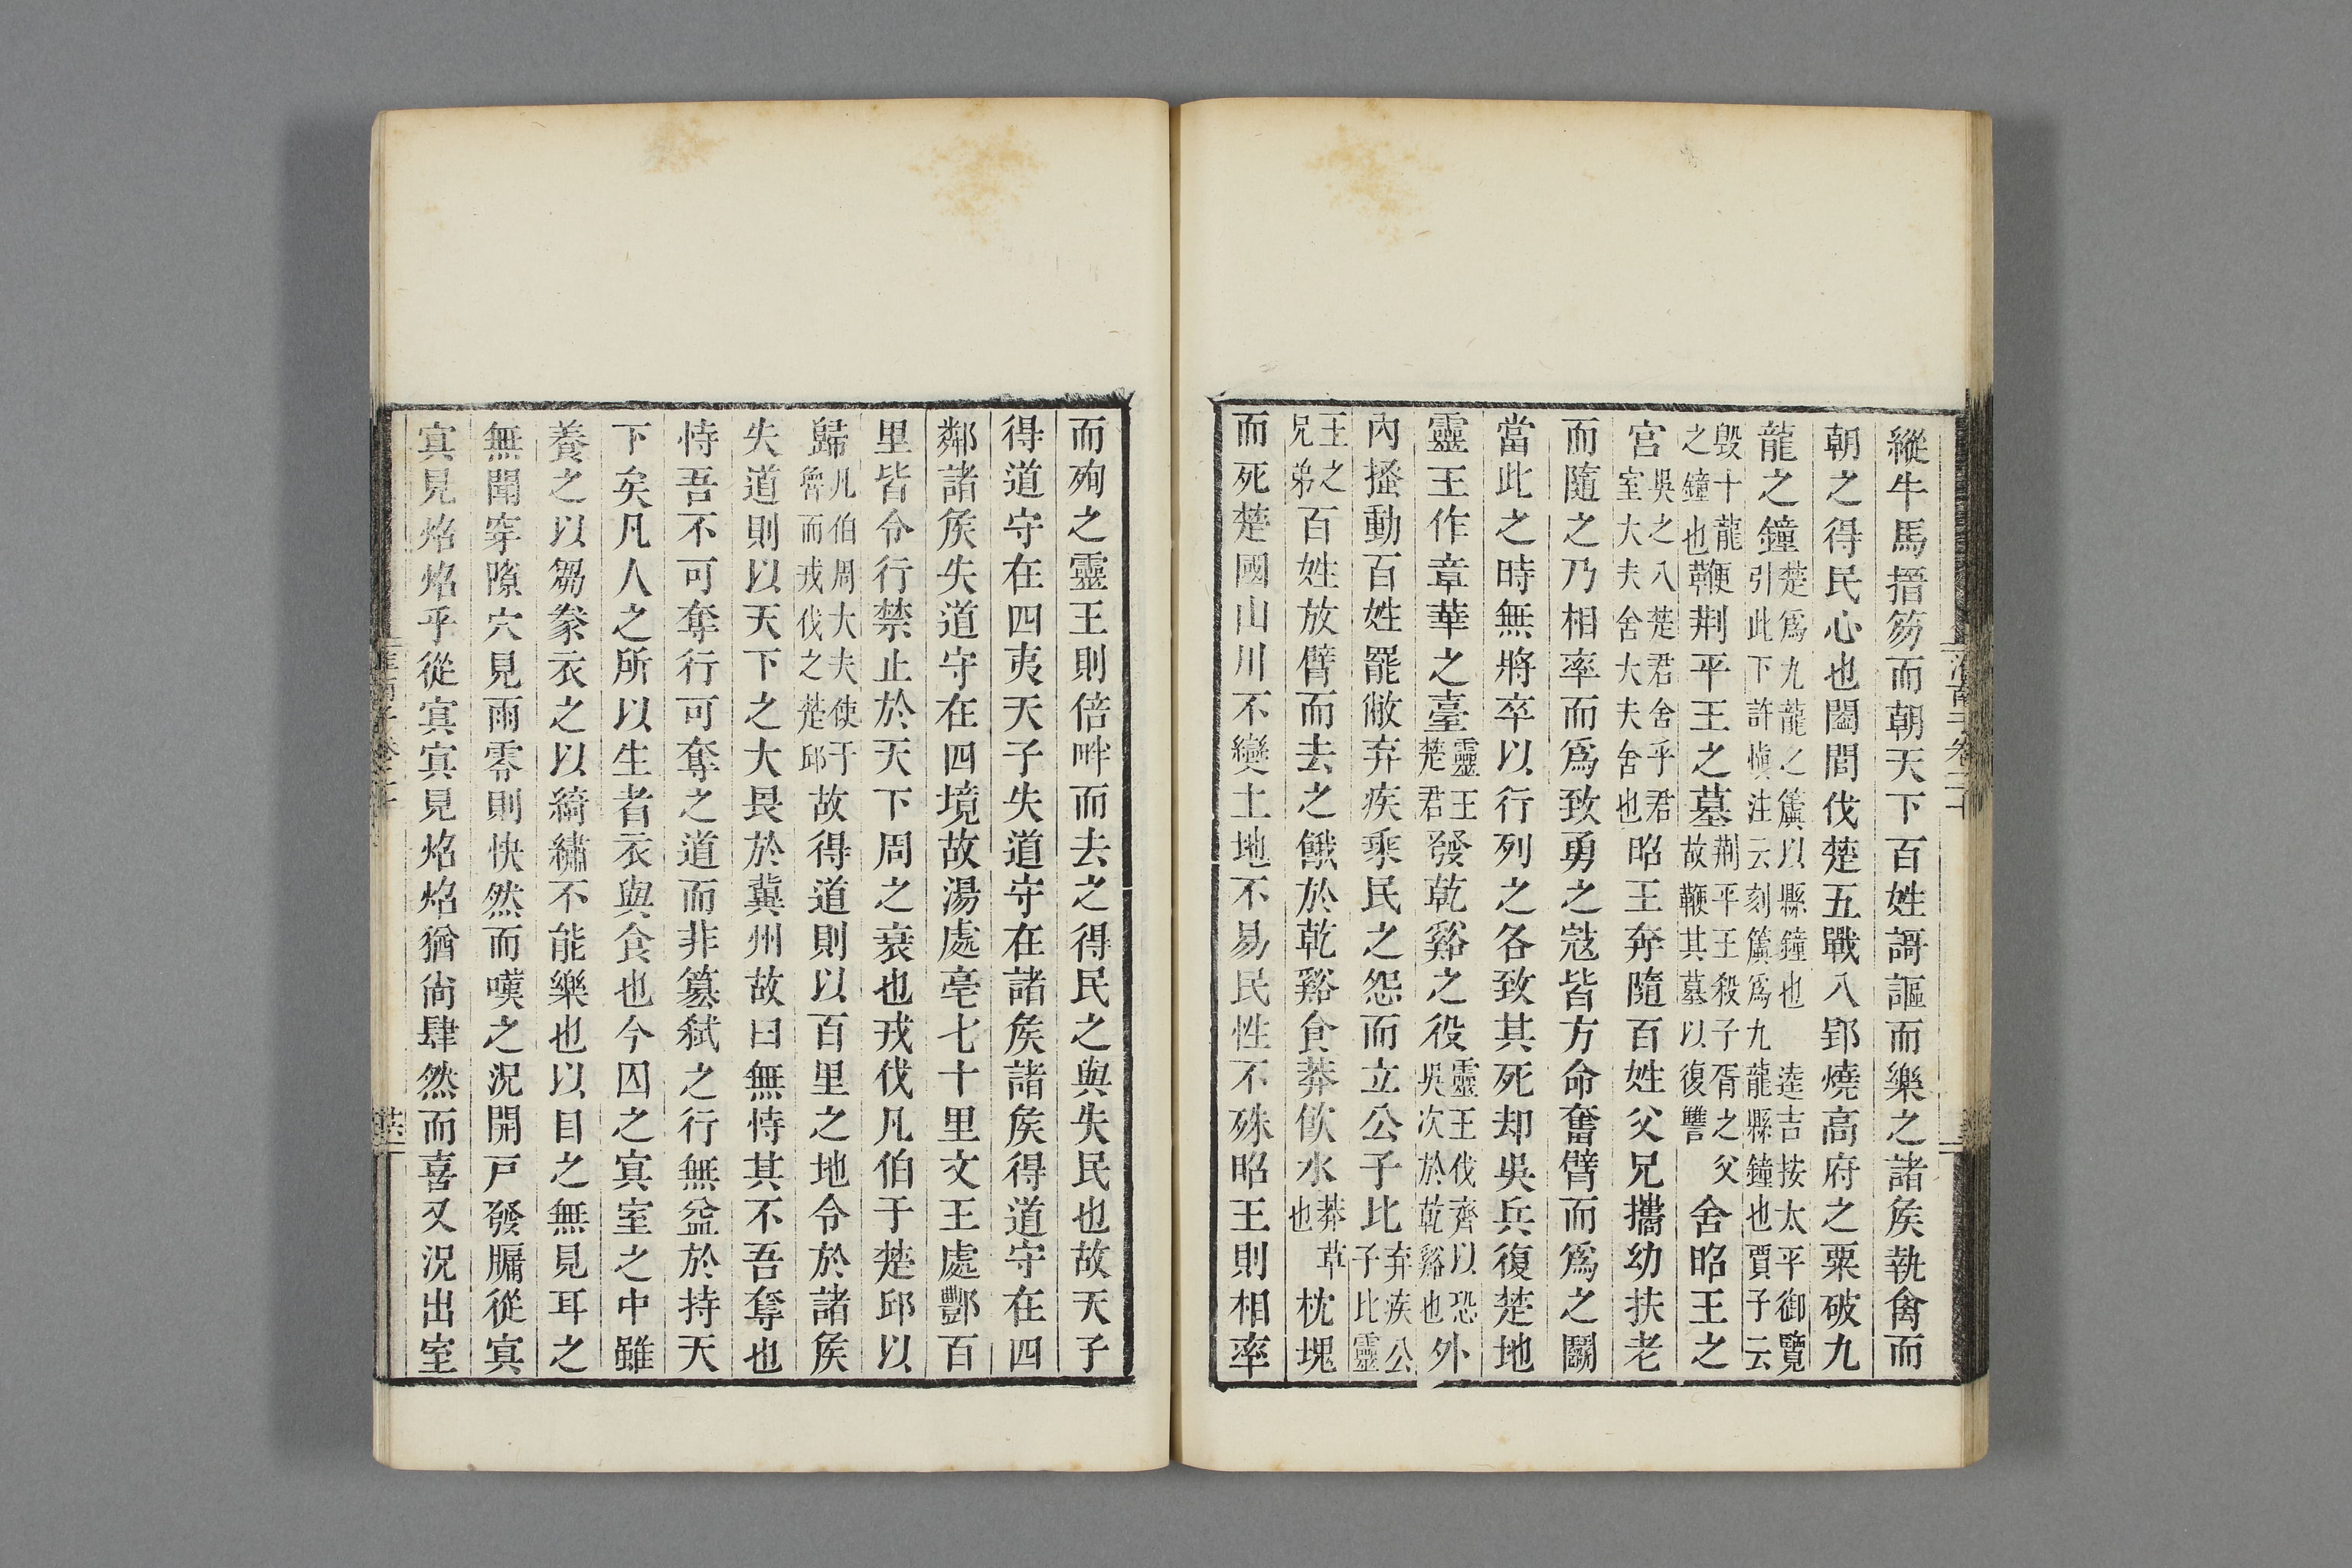 縱牛馬搢笏而朝天下百姓謌謳而樂之諸矦執禽而
朝之得民心也闔閭伐楚五戰入郢燒高府之粟破九
龍之鐘楚爲九龍之簴以縣鐘也　逵吉按太平御覽引此下許愼注云刻簴爲九龍縣鐘也賈子云
毁十龍之鐘也鞭荆平王之墓荆平王殺子胥之父故鞭其墓以復讐舍昭王之
宮吳之入楚君舍乎君室大夫舍大夫舍也昭王奔隨百姓父兄攜幼扶老
而隨之乃相率而爲致勇之寇皆方命奮臂而爲之鬭
當此之時無將卒以行列之各致其死却吳兵復楚地
靈王作章華之臺靈王楚君發乾谿之役靈王伐齊以恐吳次於乾谿也外
內搔動百姓罷敝弃疾乘民之怨而立公子比弃疾公子比靈
王之兄弟百姓放臂而去之餓於乾谿食莽飲水莽草也枕塊
而死楚國山川不變土地不易民性不殊昭王則相率
而殉之靈王則倍畔而去之得民之與失民也故天子
得道守在四夷天子失道守在諸矦諸矦得道守在四
鄰諸矦失道守在四境故湯處亳七十里文王處酆百
里皆令行禁止於天下周之衰也戎伐凡伯于楚邱以
歸凡伯周大夫使于魯而戎伐之楚邱故得道則以百里之地令於諸矦
失道則以天下之大畏於冀州故曰無恃其不吾奪也
恃吾不可奪行可奪之道而非簒弑之行無益於持天
下矣凡人之所以生者衣與食也今囚之冥室之中雖
養之以芻豢衣之以綺繡不能樂也以目之無見耳之
無聞穿隙穴見雨零則快然而嘆之況開戸發牖從冥
冥見炤炤乎從冥冥見炤炤猶尙肆然而喜又況出室